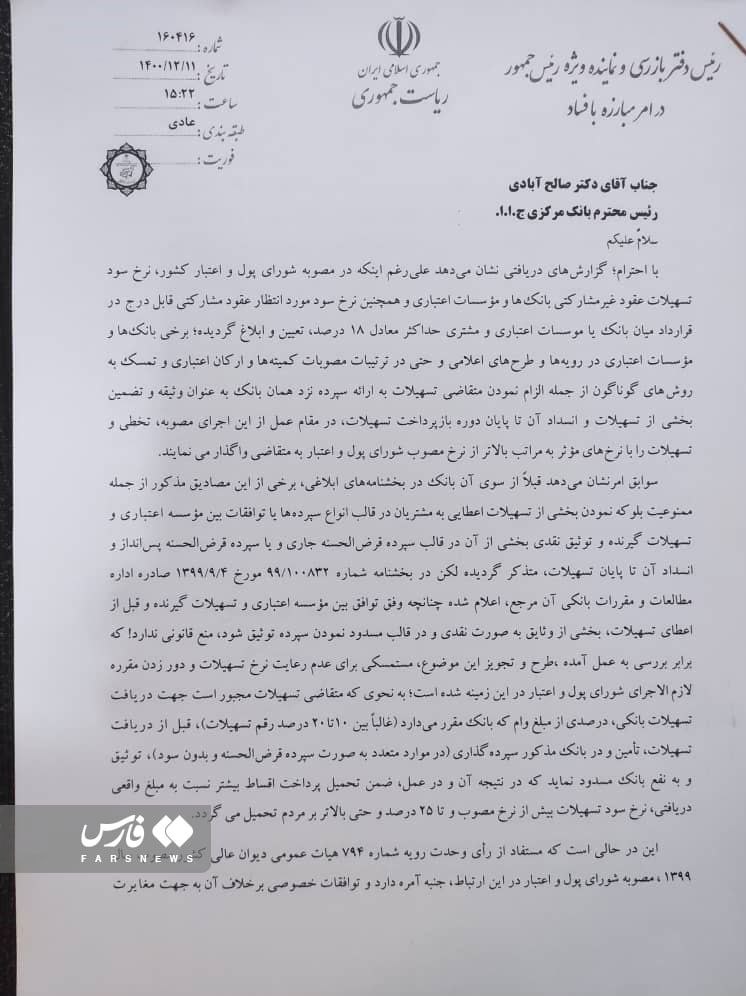 رئیس دفتر بازرسی و نماینده ویژه رئیس جمهور
در امر مبارزه با فساد
جمهوری اسلامی ایران
ریاست جمهوری
شماره: ۱۶۰۴۱۶
تاریخ: ۱۴۰۰/۱۲/۱۱
ساعت: ۱۵:۲۲
طبقه بندی: عادی
فوریت:
جناب آقای دکتر صالح آبادی
رئیس محترم بانک مرکزی ج.ا.ا.
سلامٌ علیکم
با احترام؛ گزارش‌های دریافتی نشان می‌دهد علی‌رغم اینکه در مصوبه شورای پول و اعتبار کشور، نرخ سود
تسهیلات عقود غیرمشارکتی بانک‌ها و مؤسسات اعتباری و همچنین نرخ سود مورد انتظار عقود مشارکتی قابل درج در
قرارداد میان بانک یا موسسات اعتباری و مشتری حداکثر معادل ۱۸ درصد، تعیین و ابلاغ گردیده؛ برخی بانک‌ها و
مؤسسات اعتباری در رویه‌ها و طرح‌های اعلامی و حتی در ترتیبات مصوبات کمیته‌ها و ارکان اعتباری و تمسک به
روش‌های گوناگون از جمله الزام نمودن متقاضی تسهیلات به ارائه سپرده نزد همان بانک به عنوان وثیقه و تضمین
بخشی از تسهیلات و انسداد آن تا پایان دوره بازپرداخت تسهیلات، در مقام عمل از این اجرای مصوبه، تخطی و
تسهیلات را با نرخ‌های مؤثر به مراتب بالاتر از نرخ مصوب شورای پول و اعتبار به متقاضی واگذار می نمایند.
سوابق امرنشان می‌دهد قبلاً از سوی آن بانک در بخشنامه‌های ابلاغی، برخی از این مصادیق مذکور از جمله
ممنوعیت بلوکه نمودن بخشی از تسهیلات اعطایی به مشتریان در قالب انواع سپرده‌ها یا توافقات بین مؤسسه اعتباری و
تسهیلات گیرنده و توثیق نقدی بخشی از آن در قالب سپرده قرض‌الحسنه جاری و یا سپرده قرض‌الحسنه پس‌انداز و
انسداد آن تا پایان تسهیلات، متذکر گردیده لکن در بخشنامه شماره ۹۹/۱۰۰۸۳۲ مورخ ۱۳۹۹/۹/۴ صادره اداره
مطالعات و مقررات بانکی آن مرجع، اعلام شده چنانچه وفق توافق بین مؤسسه اعتباری و تسهیلات گیرنده و قبل از
اعطای تسهیلات، بخشی از وثایق به صورت نقدی و در قالب مسدود نمودن سپرده توثیق شود، منع قانونی ندارد! که
برابر بررسی به عمل آمده ،طرح و تجویز این موضوع، مستمسکی برای عدم رعایت نرخ تسهیلات و دور زدن مقرره
لازم الاجرای شورای پول و اعتبار در این زمینه شده است؛ به نحوی که متقاضی تسهیلات مجبور است جهت دریافت
تسهیلات بانکی، درصدی از مبلغ وام که بانک مقرر می‌دارد (غالباً بین ۱۰تا۲۰ درصد رقم تسهیلات)، قبل از دریافت
تسهیلات، تأمین و در بانک مذکور سپرده‌گذاری (در موارد متعدد به صورت سپرده قرض‌الحسنه و بدون سود)، توثیق
و به نفع بانک مسدود نماید که در نتیجه آن و در عمل، ضمن تحمیل پرداخت اقساط بیشتر نسبت به مبلغ واقعی
دریافتی، نرخ سود تسهیلات بیش از نرخ مصوب و تا ۲۵ درصد و حتی بالاتر بر مردم تحمیل می گردد.
این در حالی است که مستفاد از رأی وحدت رویه شماره ۷۹۴ هیات عمومی دیوان عالی
۱۳۹۹، مصوبه شورای پول و اعتبار در این ارتباط، جنبه آمره دارد و توافقات خصوصی برخلاف آن به جهت مغایرت
فارس
FARSNEWS